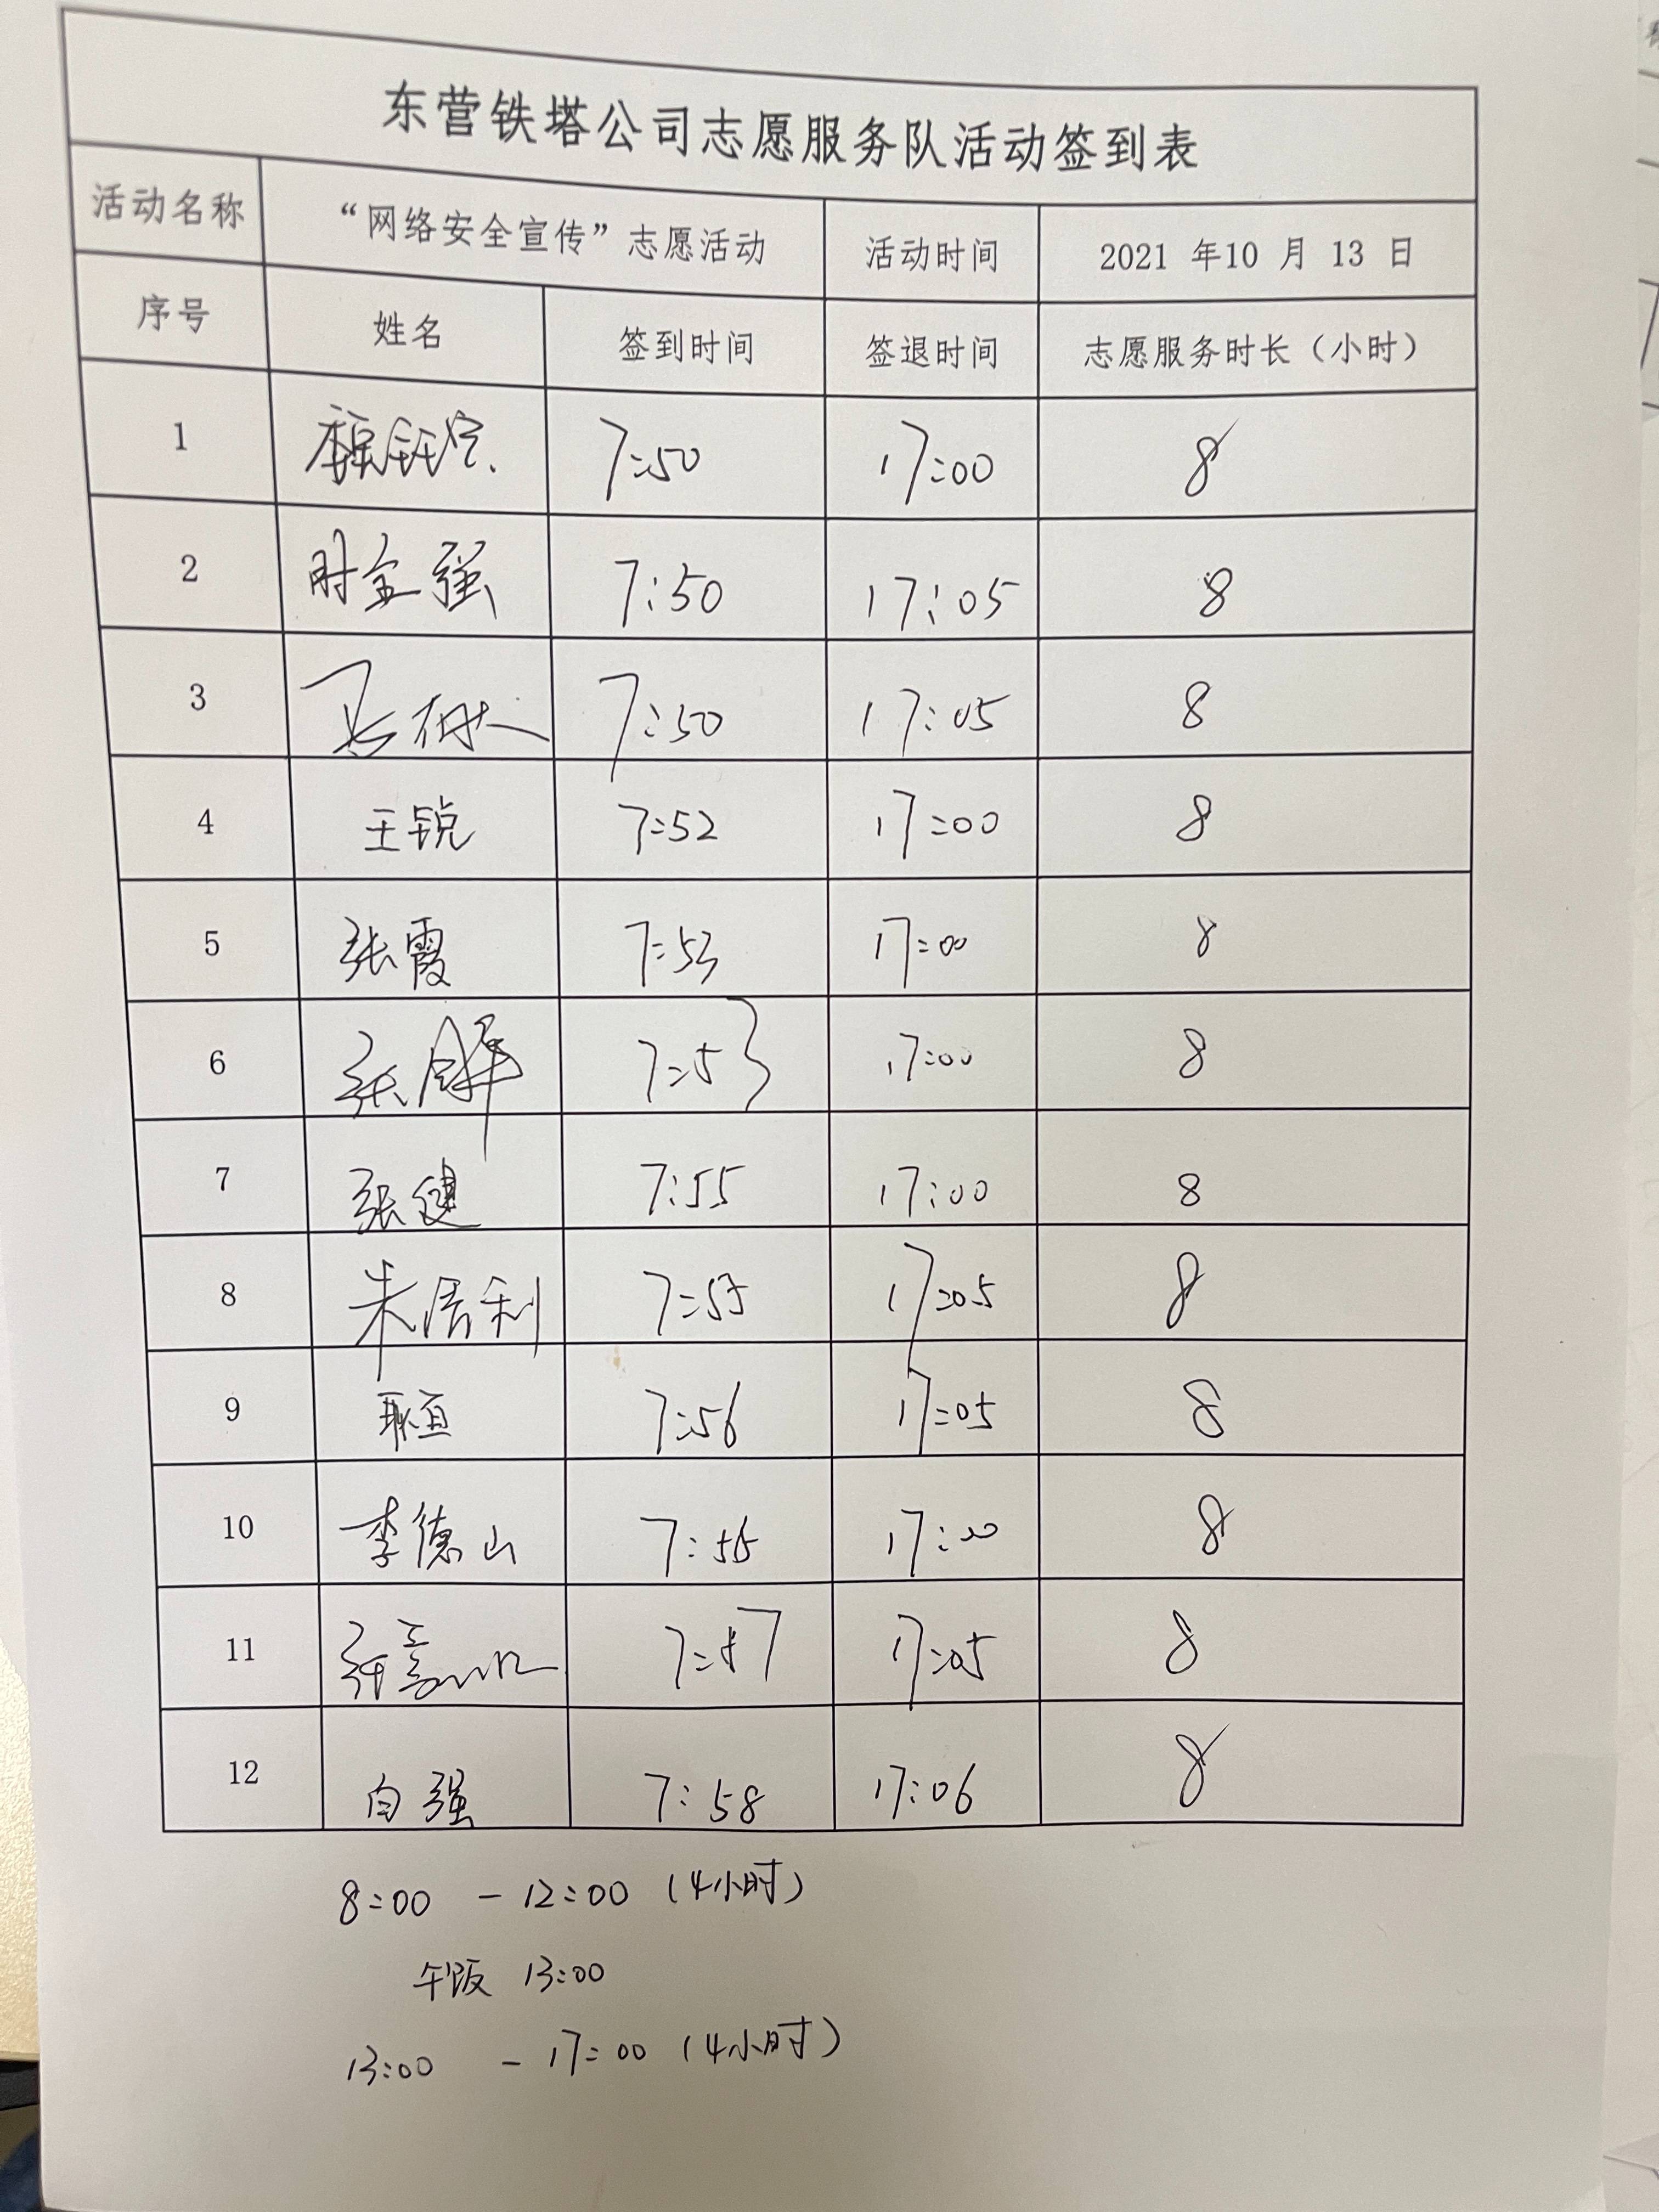 东营铁塔公司志愿服务队活动签到表
活动名称 “网络安全宣传”志愿活动 活动时间 2021 年10 月 13 日
序号 姓名 签到时间 签退时间 志愿服务时长（小时）
1 7:50 17:00 8
2 时金强 7:50 17:05 8
3 7:50 17:05 8
4 王锐 7:52 17:00 8
5 张霞 7:53 17:00 8
6 张解 7:53 17:00 8
7 张健 7:55 17:00 8
8 朱居利 7:55 17:05 8
9 7:56 17:05 8
10 李德山 7:56 17:00 8
11 7:57 17:05 8
12 白强 7:58 17:06 8
8:00 - 12:00 (4小时)
午饭 13:00
13:00 - 17:00 (4小时)